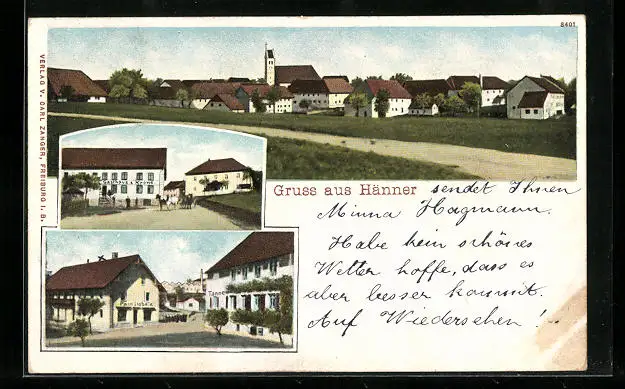 8401
VERLAG V. CARL ZANGER, FREIBURG I. B.
Gruss aus Hänner sendet Ihnen
Minna Hagmann.
Habe kein schönes
Wetter hoffe, dass es
aber besser kommt.
Auf Wiedersehen!